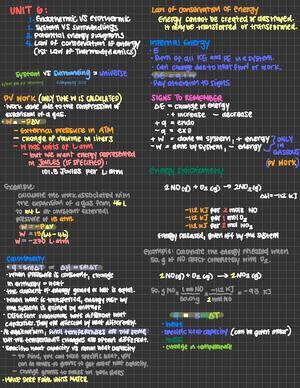 UNIT 6:
1. Endothermic vs Exothermic
2. System vs Surroundings
3. Potential energy diagrams
4. Law of conservation of energy
(1st Law of Thermodynamics)
System vs Surrounding = universe
PV WORK (ONLY IF w IS CALCULATED)
Work done due to the compression or
expansion of a gas.
W = -PΔV
- External pressure in ATM
- change of volume in liters
- W has units of L·atm
- but we want energy represented
in Joules (if specified)
101.3 Joules per L·atm
Example:
calculate the work associated with
the expansion of a gas from 46 L
to 64 L at constant external
pressure of 15 atm.
W = -PΔV
W = -15(64-46)
W = -270 L·atm
Calorimetry
q = smΔT or ΔH = smΔT
When pressure is constant, change
in enthalpy = heat
this amount of energy gained or lost is equal.
When heat is transferred, energy lost by
one system is gained by another
Different substances have different heat
capacities. They are affected by heat differently.
At equilibrium, final temperatures are the same
but the temperature changes are often different.
Specific heat capacity vs molar heat capacity
- change grams to moles on both sides
MAKE SURE FINAL UNITS MATCH.
Law of conservation of Energy
Energy cannot be created or destroyed.
it may be transferred or transformed.
Internal Energy
- E
- Sum of all KE and PE in a system.
- Can change due to heat flow or work.
ΔE = q + w
- Pay attention to signs
SIGNS TO REMEMBER
ΔE = change in energy
+ increase - decrease
+ q = endo
- q = exo
+ W = done on system, + energy
- W = done by system, - energy
ONLY
IN
GASEOUS
(PV WORK)
Energy Stoichiometry
2NO(g) + O2(g) → 2NO2(g)
ΔH=-112 KJ
-112 KJ for 2 mols NO
-112 KJ for 1 mol O2
-112 KJ for 2 mol NO2
Energy released, given off by the system
Example: calculate the energy released when
50.g NO react completely with O2.
2NO(g) + O2(g) → 2NO2(g)
q = smΔT
- heat
- specific heat capacity (can be given molar)
- mass
- change in temperature